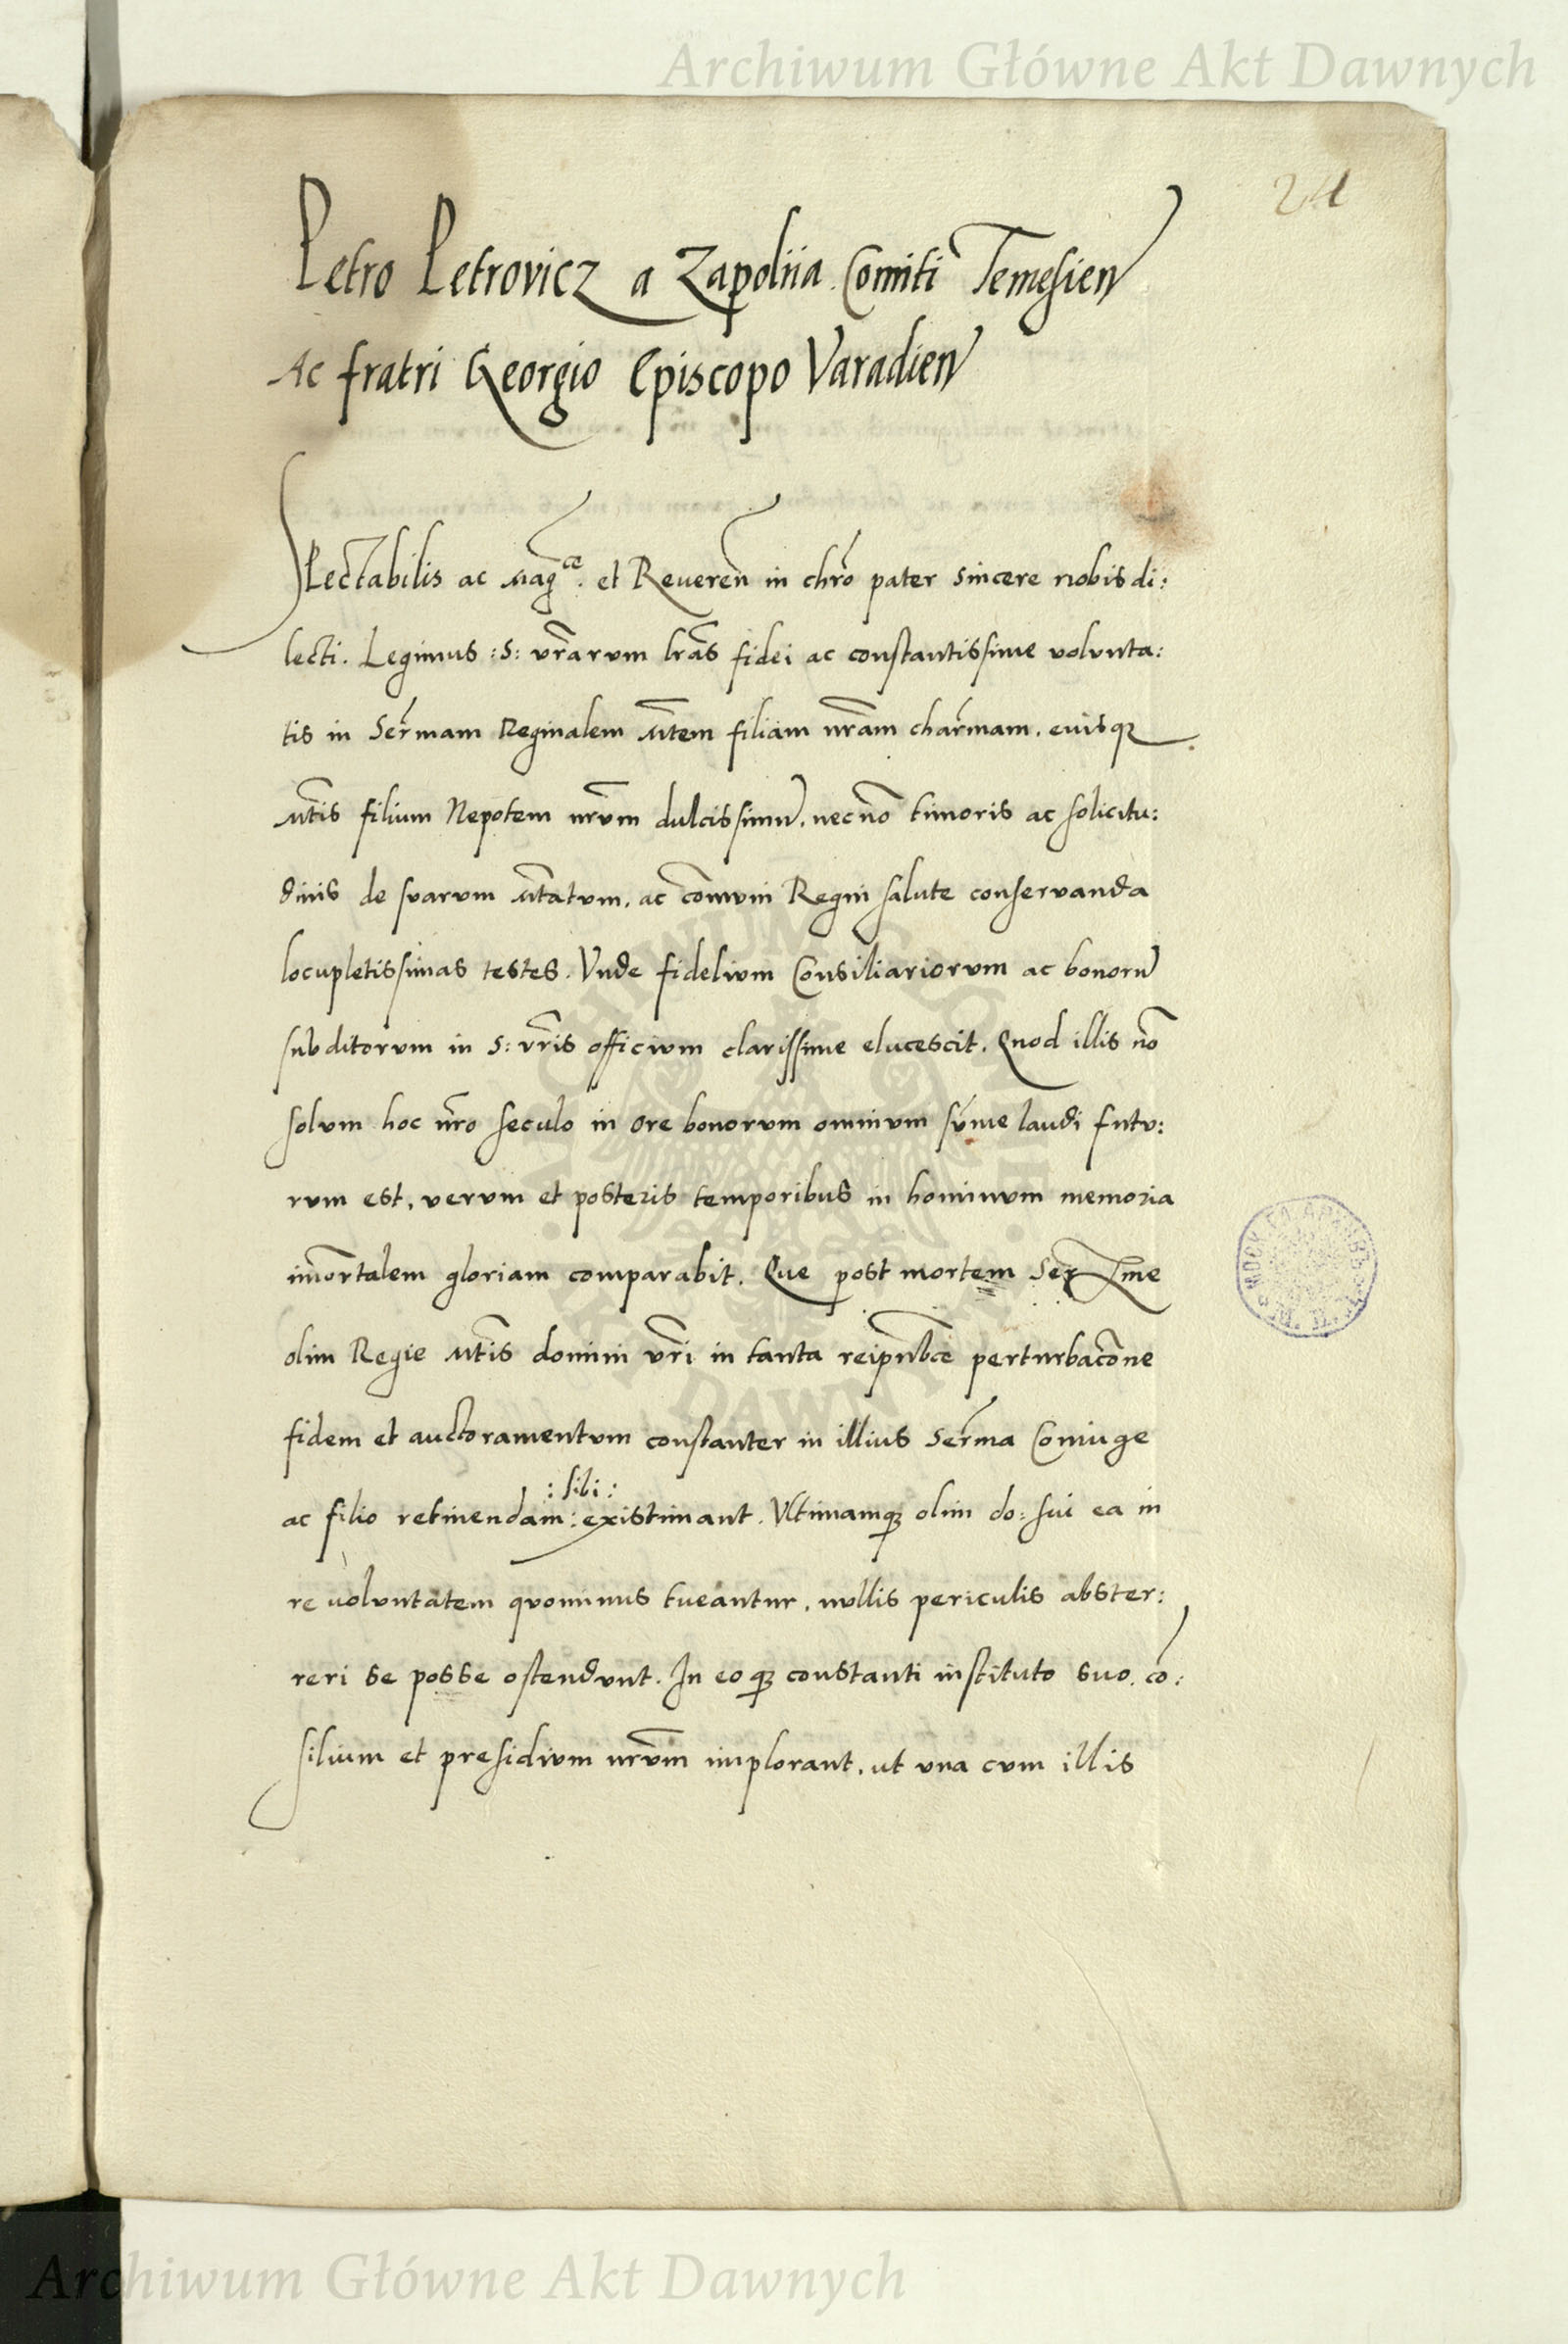 Archiwum Główne Akt Dawnych
24
Petro Petrovicz a Zapoliia Comiti Temesien
Ac fratri Georgio Episcopo Varadien
Spectabilis ac Magce. et Reueren in chro pater sincere nobis di:
lecti. Legimus :S: vrarum lras fidei ac constantissime volunta:
tis in Sermam Reginalem Mtem filiam nram charmam. euisque
Mtis filium Nepotem nrum dulcissimu, necno timoris ac solicitu:
dinis de suarum Mtatum, ac comuni Regni salute conseruanda
locupletissimas testes. Vnde fidelium Consiliariorum ac bonoru
subditorum in S: vris officium clarissime elucescit. Quod illis no
solum hoc nro seculo in ore bonorum omnium sume laudi futu:
rum est, verum et posteris temporibus in hominum memoria
imortalem gloriam comparabit. Que post mortem Serme
olim Regie Mtis domini vri in tanta reipublce perturbacone
fidem et auctoramentum constanter in illius Serma Coniuge
:sibi:
ac filio retinendam: existimant. Vltimamque olim do: sui ea in
re voluntatem quominus tueantur, nullis periculis abster:
reri se posse ostendunt. In eoque constanti instituto suo, co:
silium et presidium nrum implorant, ut vna cum illis
Archiwum Główne Akt Dawnych